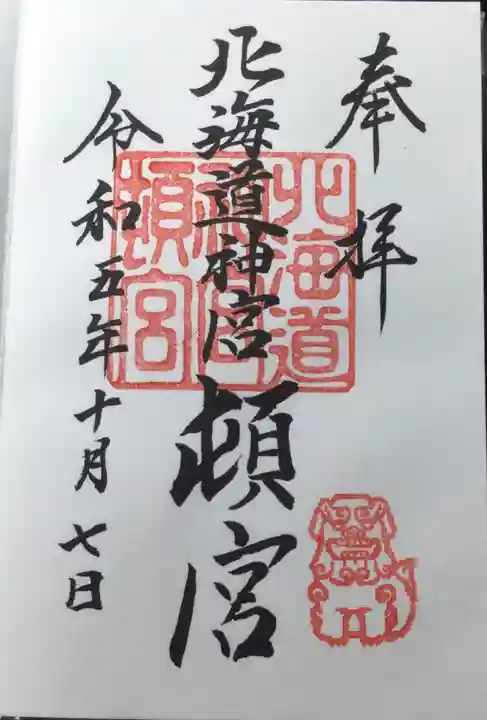 奉拝
北海道神宮頓宮
令和五年十月七日
北海道
神宮
頓宮